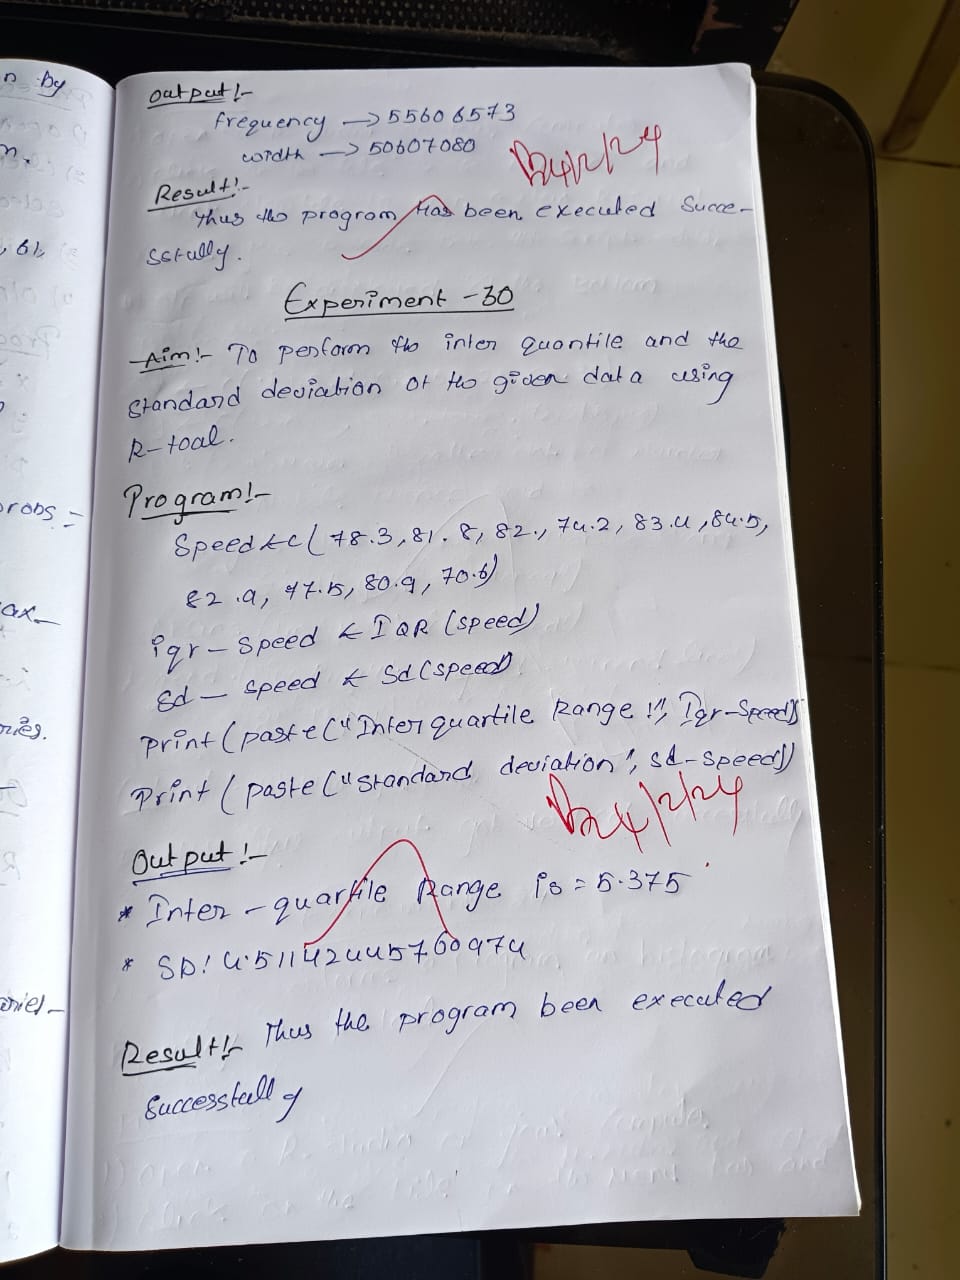 n by
n.
, 61,
probs =
ax_
ries.
Output :-
frequency → 55606573
width → 50607080
Result:-
Thus the program has been executed Succe-
ssfully.
Experiment - 30
Aim:- To perform the inter quantile and the
standard deviation of the given data using
R-toal.
Program:-
Speed <c( 78.3, 81.8, 82., 74.2, 83.4, 84.5,
82.9, 77.5, 80.9, 70.6)
iqr - speed < IQR (speed)
sd - speed < sd (speed)
print (paste ("Inter quartile Range :", Iqr-speed))
Print ( paste ("standard deviation", sd-speed))
Output :-
* Inter - quartile Range is = 5.375
* SD: 4.51142445760974
Result:- Thus the program been executed
successfully